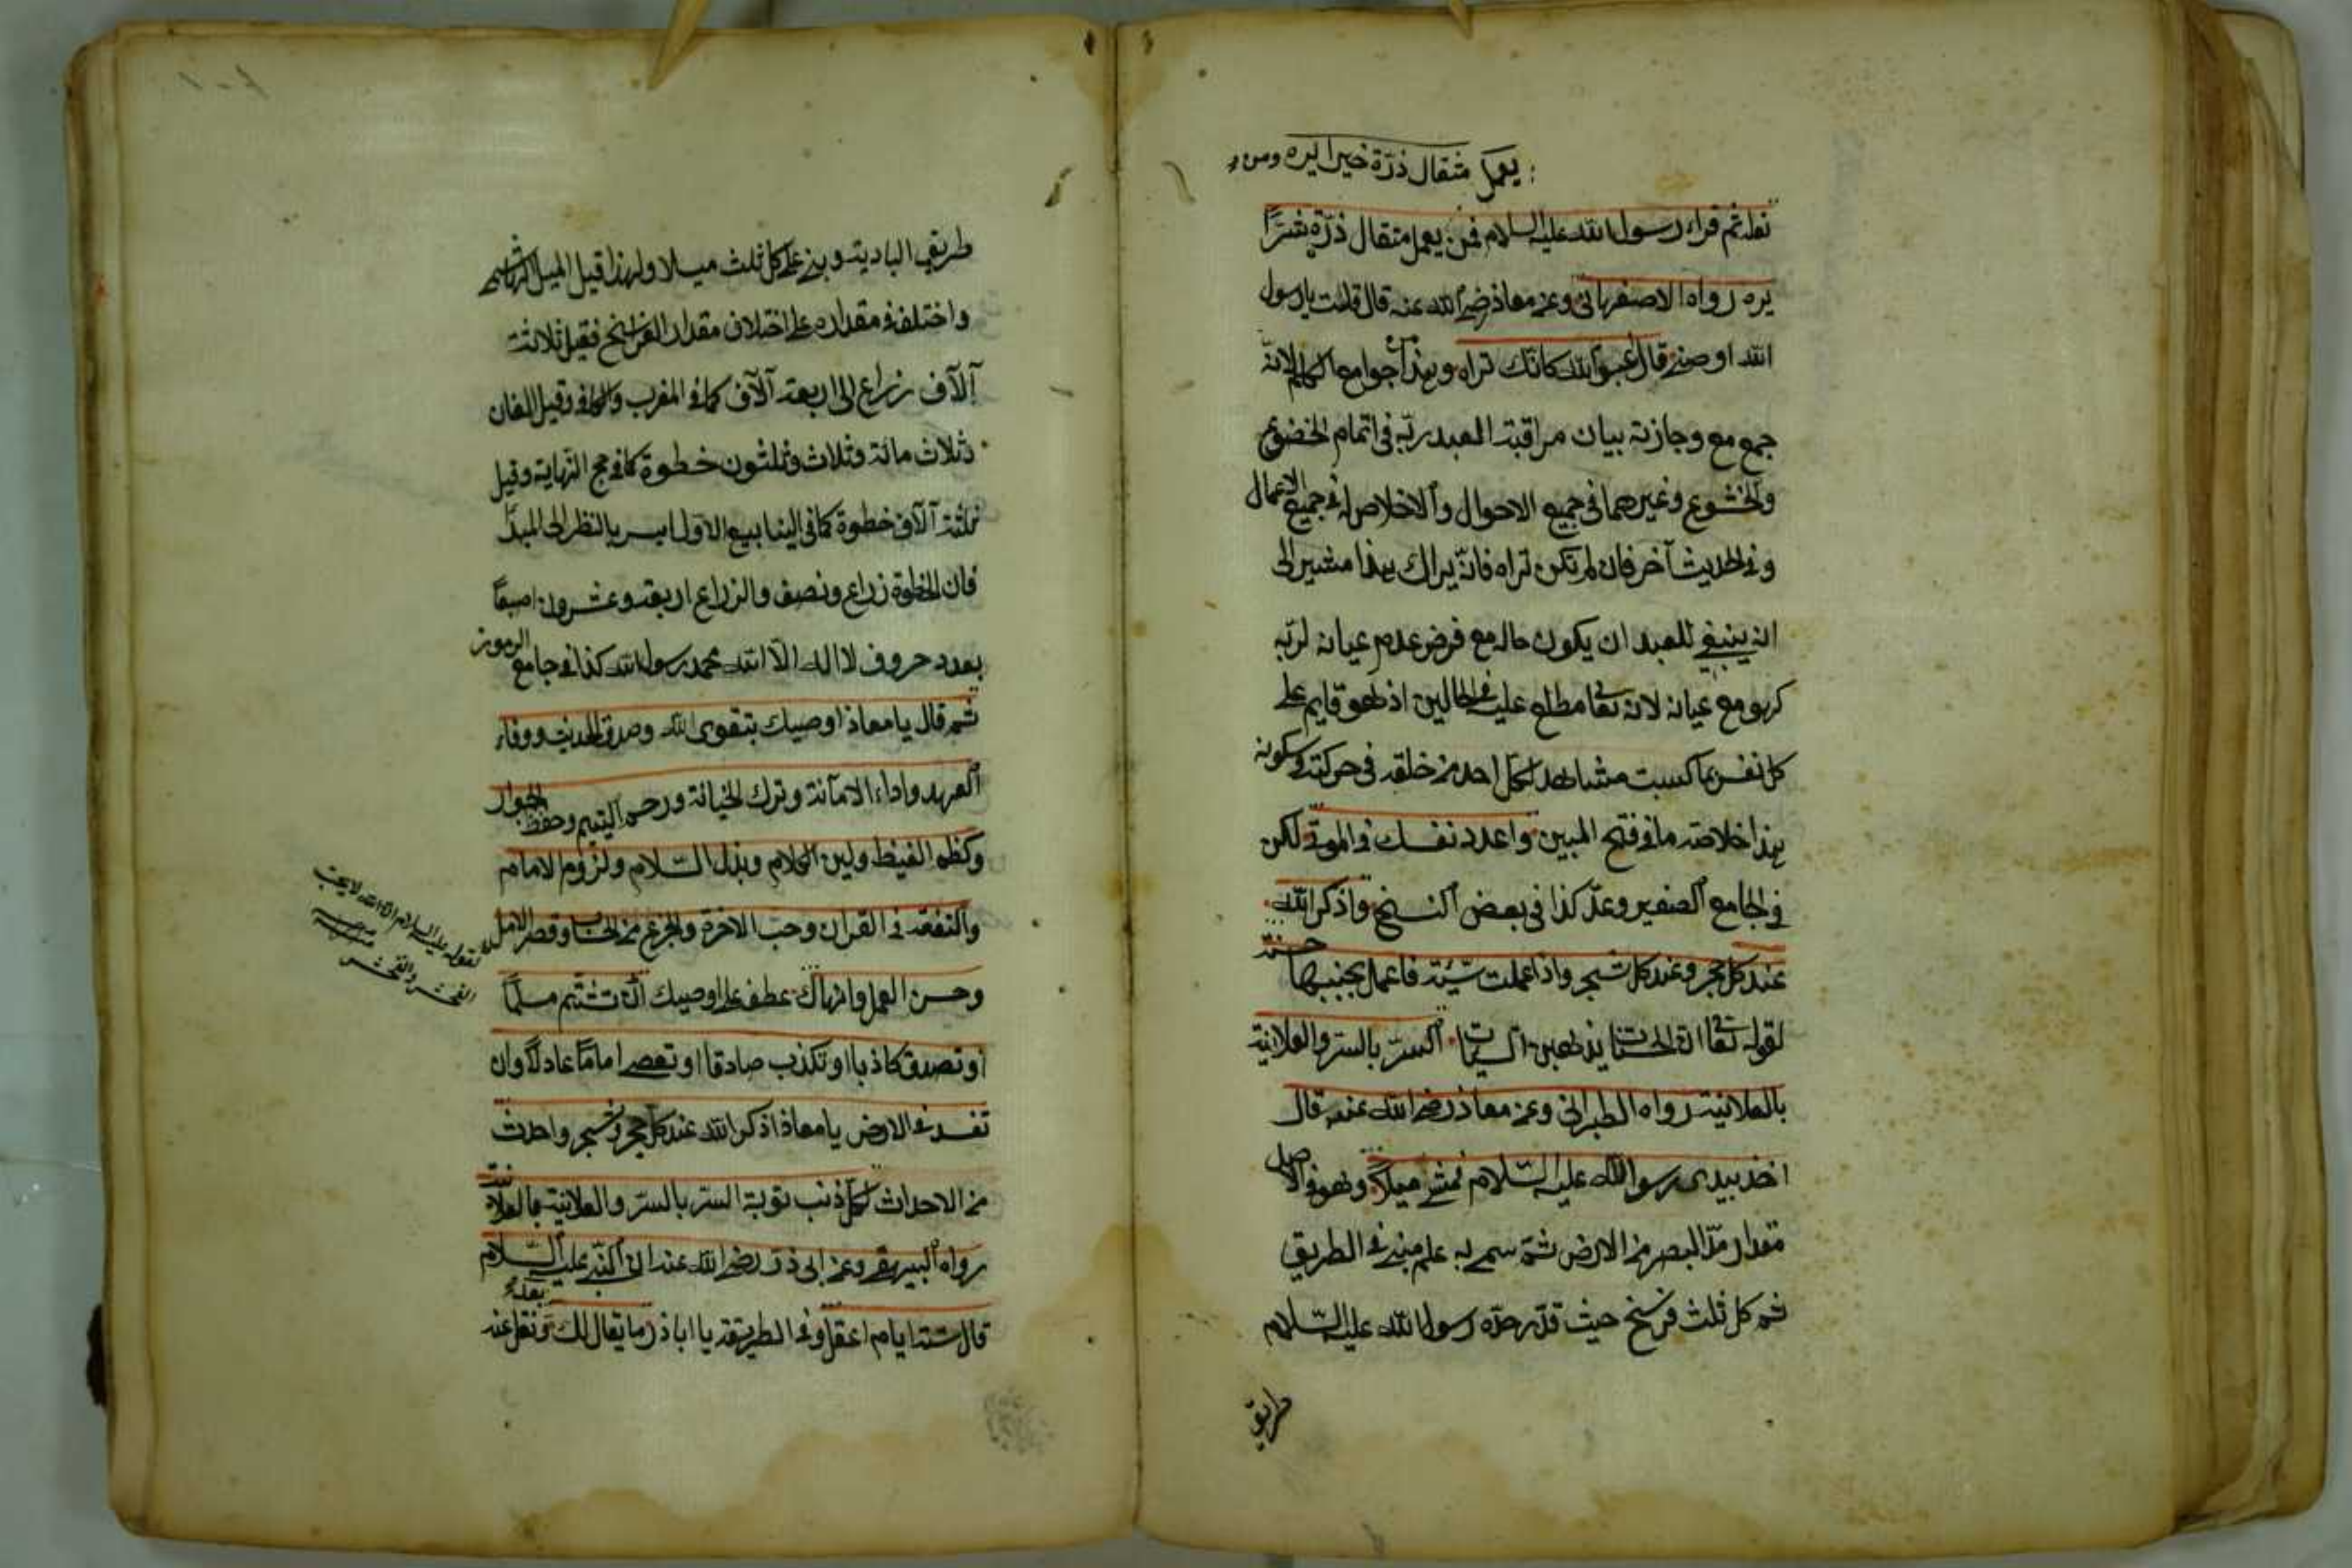 يعمل مثقال ذرة خيرا يره ومن
ثم قراء رسول الله عليه السلام فمن يعمل مثقال ذرة شرا
يره رواه الاصفهاني وعن معاذ رضي الله عنه قال قلت يا رسول
الله اوصني قال اعبد الله كانك تراه وهذا من جوامع الكلم لانه
جمع مع وجازته بيان مراقبة العبد ربه في اتمام الخضوع
والخشوع وغيرهما في جميع الاحوال والاخلاص له في جميع الاعمال
وفي الحديث آخر فان لم تكن تراه فانه يراك بهذا مشير الى
انه ينبغي للعبد ان يكون حاله مع فرض عدم عيانه لربه
كهو مع عيانه لانه تعا مطلع عليه في الحالين اذ هو قايم على
كل نفس بما كسبت مشاهد لكل احد من خلقه في حركته وسكونه
هذا خلاصة ما في فتح المبين واعدد نفسك في الموتى لكن
في الجامع الصغير وعد كذا في بعض النسخ واذكر الله
عند كل حجر وعند كل شجر واذا عملت سيئة فاعمل بجنبها حسنة
لقوله تعا ان الحسنات يذهبن السيات السر بالسر والعلانية
بالعلانية رواه الطبراني وعن معاذ رضي الله عنه قال
اخذ بيدي رسول الله عليه السلام فمشى ميلا وهو في الاصل
مقدار مد البصر من الارض ثم سمي به علم مبني في الطريق
ثم كل ثلث فرسخ حيث قدر حده رسول الله عليه السلام
طريق
طريق البادية وبنى على كل ثلث ميلا ولهذا قيل الميل الهاشمي
واختلف في مقداره على اختلاف مقدار الفرسخ فقيل ثلاثة
آلاف زراع الى اربعة آلاف كما في المغرب وقيل الفان
وثلاث مائة وثلاث وثلثون خطوة كما في حج النهاية وقيل
ثلثة آلاف خطوة كما في الينابيع الاول ايسر بالنظر الى المبدأ
فان الخطوة زراع ونصف والزراع اربعة وعشرون اصبعا
بعدد حروف لا اله الا الله محمد رسول الله كذا في جامع الرموز
ثم قال يا معاذ اوصيك بتقوى الله وصدق الحديث ووفاء
العهد واداء الامانة وترك الخيانة ورحم اليتيم وحفظ الجوار
وكظم الغيظ ولين الكلام وبذل السلام ولزوم الامام
والتفقه في القران وحب الاخرة والجزع من الحساب وقصر الامل
لقوله عليه السلام ان الله لا يحب
الفحش والتفحش
وحسن العمل وانهاك عطف على اوصيك ان تشتم مسلما
او تصدق كاذبا او تكذب صادقا او تعصي اماما عادلا وان
تفسد في الارض يا معاذ اذكر الله عند كل حجر وشجر واحدث
من الاحداث لكل ذنب توبة السر بالسر والعلانية بالعلانية
رواه البيهقي وعن ابى ذر رضي الله عنه ان النبي عليه السلام
قال ستة ايام اعقل وفي الطريقة يا اباذر ما يقال لك بعد ونقل عنه